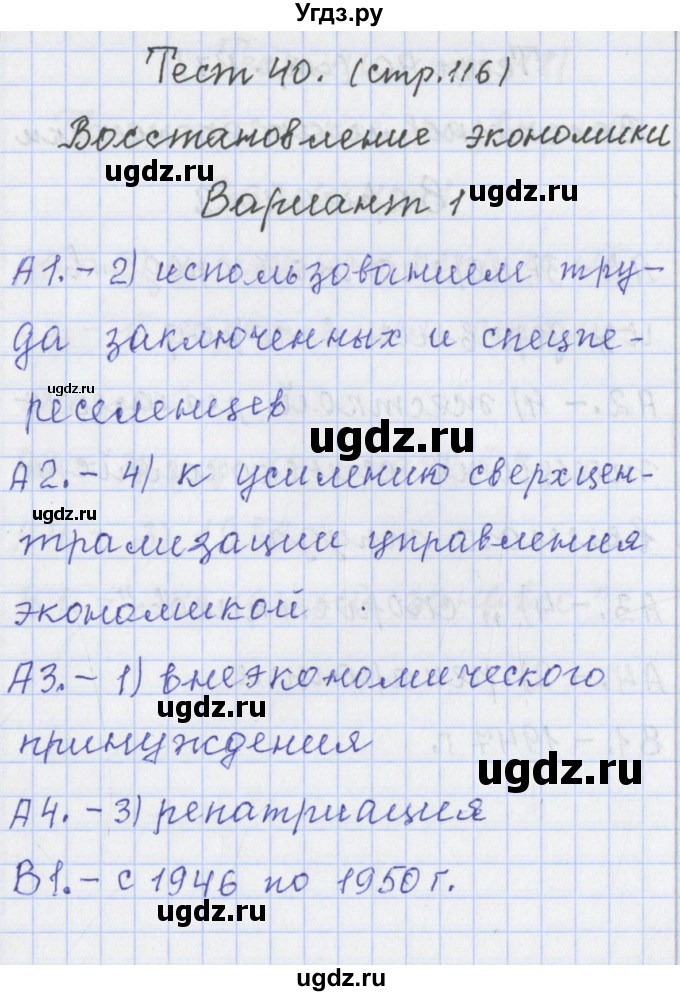 Угдз.ру
Тест 40. (стр.116)
Восстановление экономики
ugdz.ru ugdz.ru
Вариант 1
А1.- 2) использованием тру-
да заключенных и спецпе-
ugdz.ru
реселенцев
ugdz.ru
А2.- 4) к усилению сверхцен-
ugdz.ru
трализации управления
экономикой
А3.- 1) внеэкономического
ugdz.ru
принуждения
ugdz.ru
А4. - 3) репатриация
В1.- с 1946 по 1950 г.
ugdz.ru
ugdz.ru